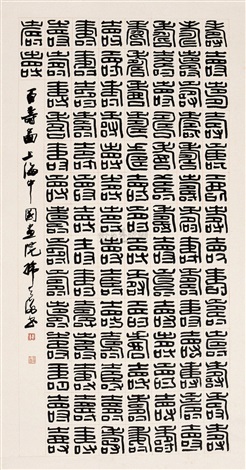 壽壽壽壽壽壽壽壽壽壽壽壽壽壽
壽壽壽壽壽壽壽壽壽壽壽壽壽壽
壽壽壽壽壽壽壽壽壽壽壽壽壽壽
壽壽壽壽壽壽壽壽壽壽壽壽壽壽
壽壽壽壽壽壽壽壽壽壽壽壽壽壽
壽壽壽壽壽壽壽壽壽壽壽壽壽壽
壽壽壽壽壽壽壽壽壽壽壽壽壽壽
壽壽
百壽圖上海中國画院